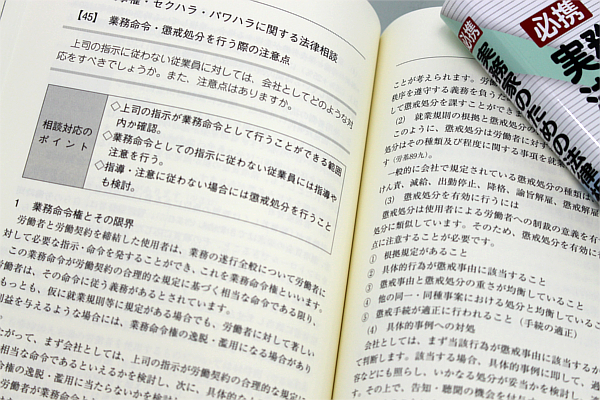 権・セクハラ・パワハラに関する法律相談
【45】 業務命令・懲戒処分を行う際の注意点
上司の指示に従わない従業員に対しては、会社としてどのような対
応をすべきでしょうか。また、注意点はありますか。
相談対応の
ポイント
◇上司の指示が業務命令として行うことができる範囲
内か確認。
◇業務命令としての指示に従わない従業員には指導や
注意を行う。
◇指導・注意に従わない場合には懲戒処分を行うこと
も検討。
1 業務命令権とその限界
労働者と労働契約を締結した使用者は、業務の遂行全般について労働者に
対して必要な指示・命令を発することができ、これを業務命令権といいます。
この業務命令が労働契約の合理的な規定に基づく相当な命令である限り、
労働者は、その命令に従う義務があるとされています。
もっとも、仮に就業規則等に規定がある場合でも、労働者に対して著しい
利益を与えるような場合には、業務命令権の逸脱・濫用になる場合があり
たがって、まず会社としては、上司の指示が労働契約の合理的な規定に
相当な命令であるといえるかを検討し、次に、具体的な
逸脱・濫用に当たらないかを検討
労働者が業務命令
ことが考えられます。労
秩序を遵守する義務を負うた
して懲戒処分を課すことができ
(2) 就業規則の根拠と懲戒処分の
このように、懲戒処分は労働者に対す
処分はその種類及び程度に関する事項を就
す(労基89九)。
一般的に会社で規定されている懲戒処分の種類は
けん責、減給、出勤停止、降格、諭旨解雇、懲戒解雇
(3) 懲戒処分を有効に行うには
懲戒処分は使用者による労働者への制裁の意義を有
処分に類似しています。そのため、懲戒処分を有効に
点に注意することが必要です。
① 根拠規定があること
② 具体的行為が懲戒事由に該当すること
③ 懲戒事由と懲戒処分の重さが均衡していること
④ 他の同一・同種事案における処分と均衡していること
⑤ 懲戒手続が適正に行われること(手続の適正)
(4) 具体的事例への対処
会社としては、まず当該行為が懲戒事由に該当するか
て判断します。該当する場合、具体的事例に即して、過
容などにも照らし、いかなる処分が妥当かを検討し
す。その上で、告知・聴聞の機会を付与す
必携
実務
法
実務家のための法律